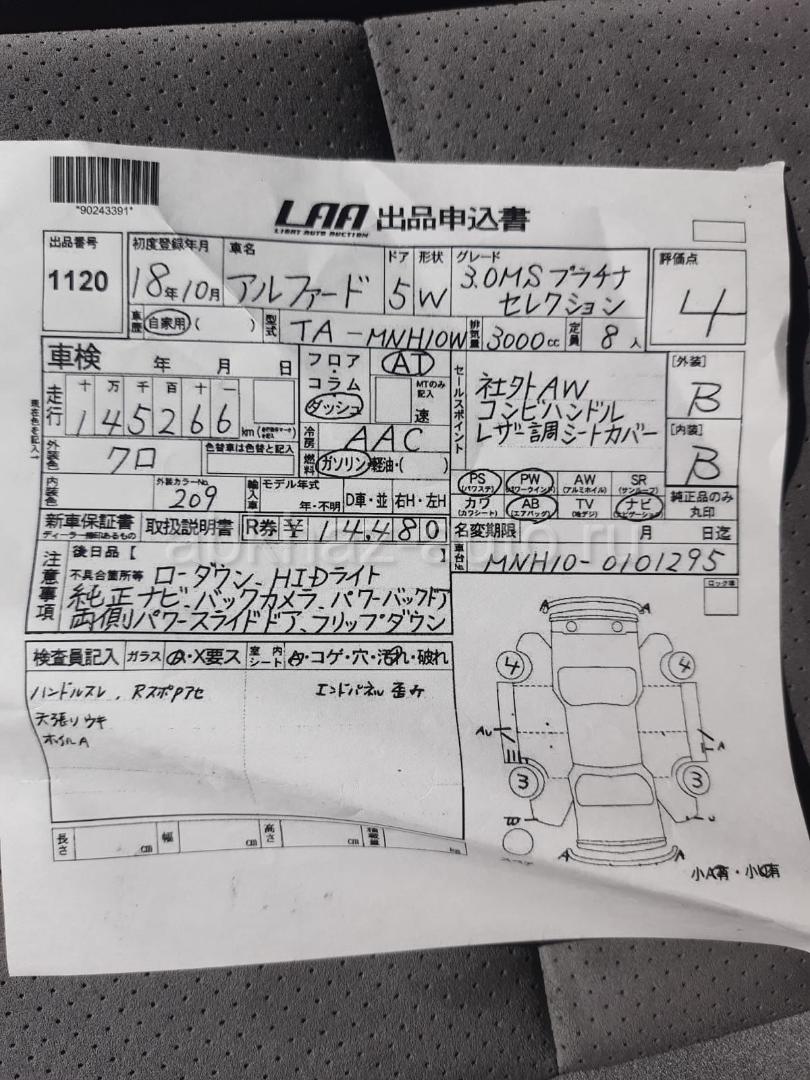 *90243391*
LAA 出品申込書
LIGHT AUTO AUCTION
出品番号 初度登録年月 車名 ドア 形状 グレード 評価点
1120 18年10月 アルファード 5 W 3.0MSプラチナ
セレクション 4
車歴 自家用 ( ) 型式 TA-MNH10W 排気量 3000cc 定員 8人
車検 年 月 日 フロア・コラム ダッシュ AT MTのみ記入 速
走行 十 万 千 百 十 一
145266 km
現在色を記入→
冷房 AAC
外装色 クロ 色替車は色替と記入 燃料 ガソリン・軽油・( )
内装色 外装カラーNo. 209 輸入車 モデル年式 年・不明 D車・並 右H・左H
新車保証書 取扱説明書 R券 ¥ 14,480
ディーラー捺印あるもの
セールスポイント
社外AW
コンビハンドル
レザー調シートカバー
[外装]
B
[内装]
B
PS (パワステ) PW (パワーウインド) AW (アルミホイル) SR (サンルーフ)
カワ (カワシート) AB (エアバッグ) TV (地デジ) ナビ (ナビゲーション)
純正品のみ丸印
名変期限 月 日迄
車台No. MNH10-0101295
注意事項
後日品【 】
不具合箇所等 ローダウン、HIDライト
純正ナビ、バックカメラ、パワーバックドア
両側パワースライドドア、フリップダウン
検査員記入 ガラス A・X要ス 室内シート A・コゲ・穴・汚れ・破れ
ハンドルスレ、RスポPアセ エンドパネル歪み
天張りウキ
ホイルA
長さ cm 幅 cm 高さ cm 積載量 kg
A A
4 4
AU A
3 3
U
A A
小A有・小U有
abkhaz-auto.ru